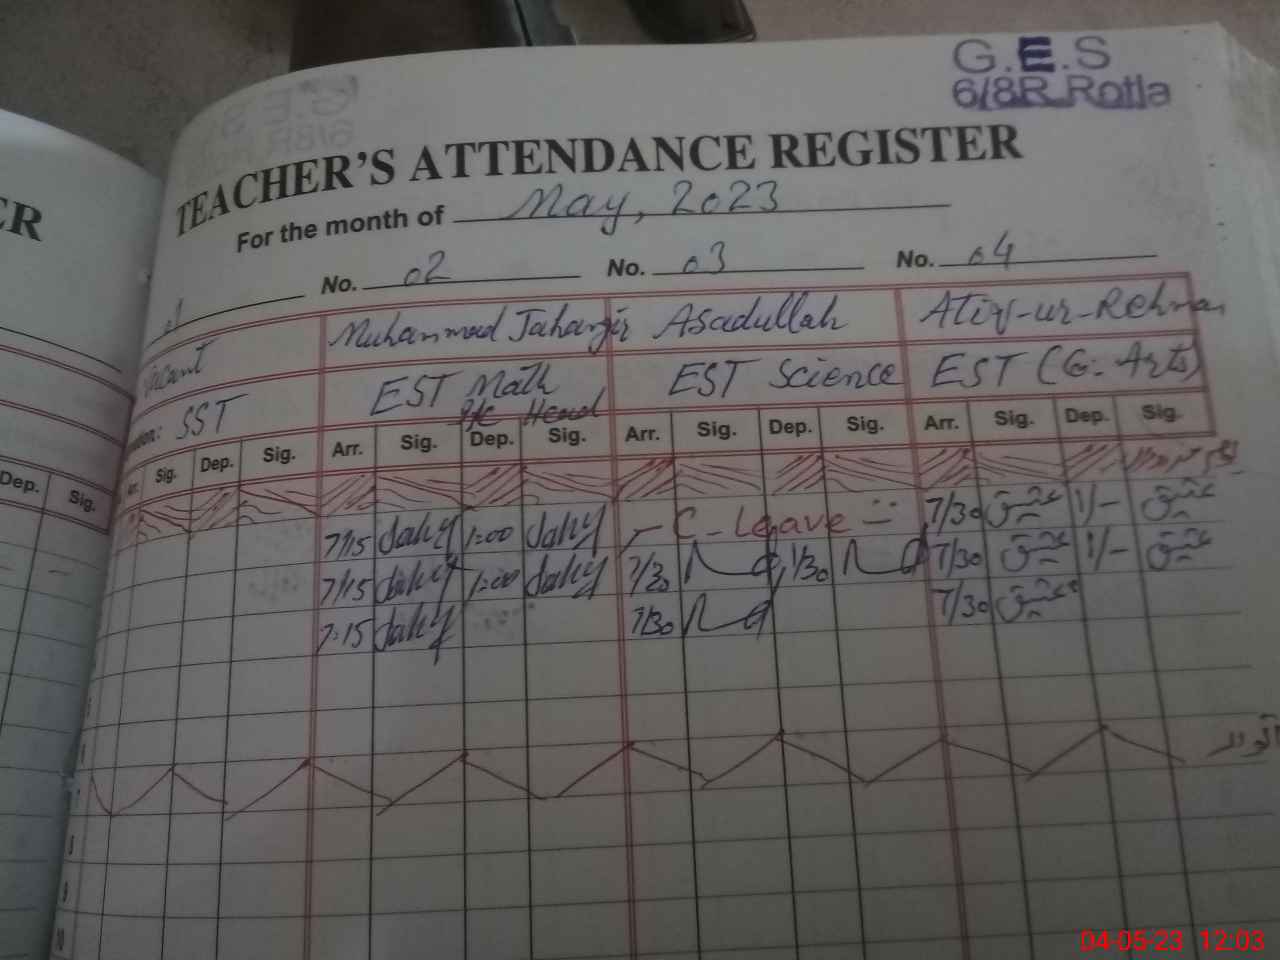 G.E.S
6/8R Rotla
TEACHER'S ATTENDANCE REGISTER
ER
For the month of May, 2023
No. 02 No. 03 No. 04
Muhammad Jahangir Asadullah Atiq-ur-Rehman
SST EST Math EST Science EST (G. Arts)
I/C Head
Dep. Sig.
Arr. Sig. Dep. Sig. Arr. Sig. Dep. Sig. Arr. Sig. Dep. Sig. Arr. Sig. Dep. Sig.
7/15 1:00 C-Leave 7/30 عتیق 1/- عتیق
7/15 1:00 7/30 1/30 7/30 عتیق 1/- عتیق
7:15 7/30 7/30 عتیق
اتوار
8
9
10
04-05-23 12:03